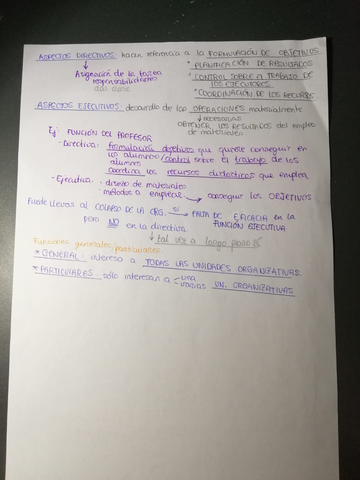 ASPECTOS DIRECTIVOS: hacen referencia a la FORMULACIÓN DE OBJETIVOS
* PLANIFICACIÓN DE RESULTADOS
Asignación de la tarea
* CONTROL SOBRE EL TRABAJO DE
responsabilidades
LOS EJECUTORES
* COORDINACIÓN DE LOS RECURS.
ASPECTOS EJECUTIVOS: desarrollo de las OPERACIONES materialmente
necesarias
OBTENER LOS RESULTADOS del empleo
de materiales
Ej: FUNCIÓN DEL PROFESOR
- Directiva: formulación objetivos que quiere conseguir en
un alumno / control sobre el trabajo de los
alumnos
coordina los recursos didácticos que emplea
- Ejecutiva: • diseño de materiales
• métodos a emplear → conseguir los OBJETIVOS
Puede llevar al COLAPSO DE LA ORG. sí → FALTA DE EFICACIA en la
FUNCIÓN EJECUTIVA
pero NO en la directiva
tal vez a largo plazo sí
Funciones generales/particulares
* GENERAL: interesa a TODAS LAS UNIDADES ORGANIZATIVAS
* PARTICULARES: sólo interesan a una
varias UN. ORGANIZATIVAS